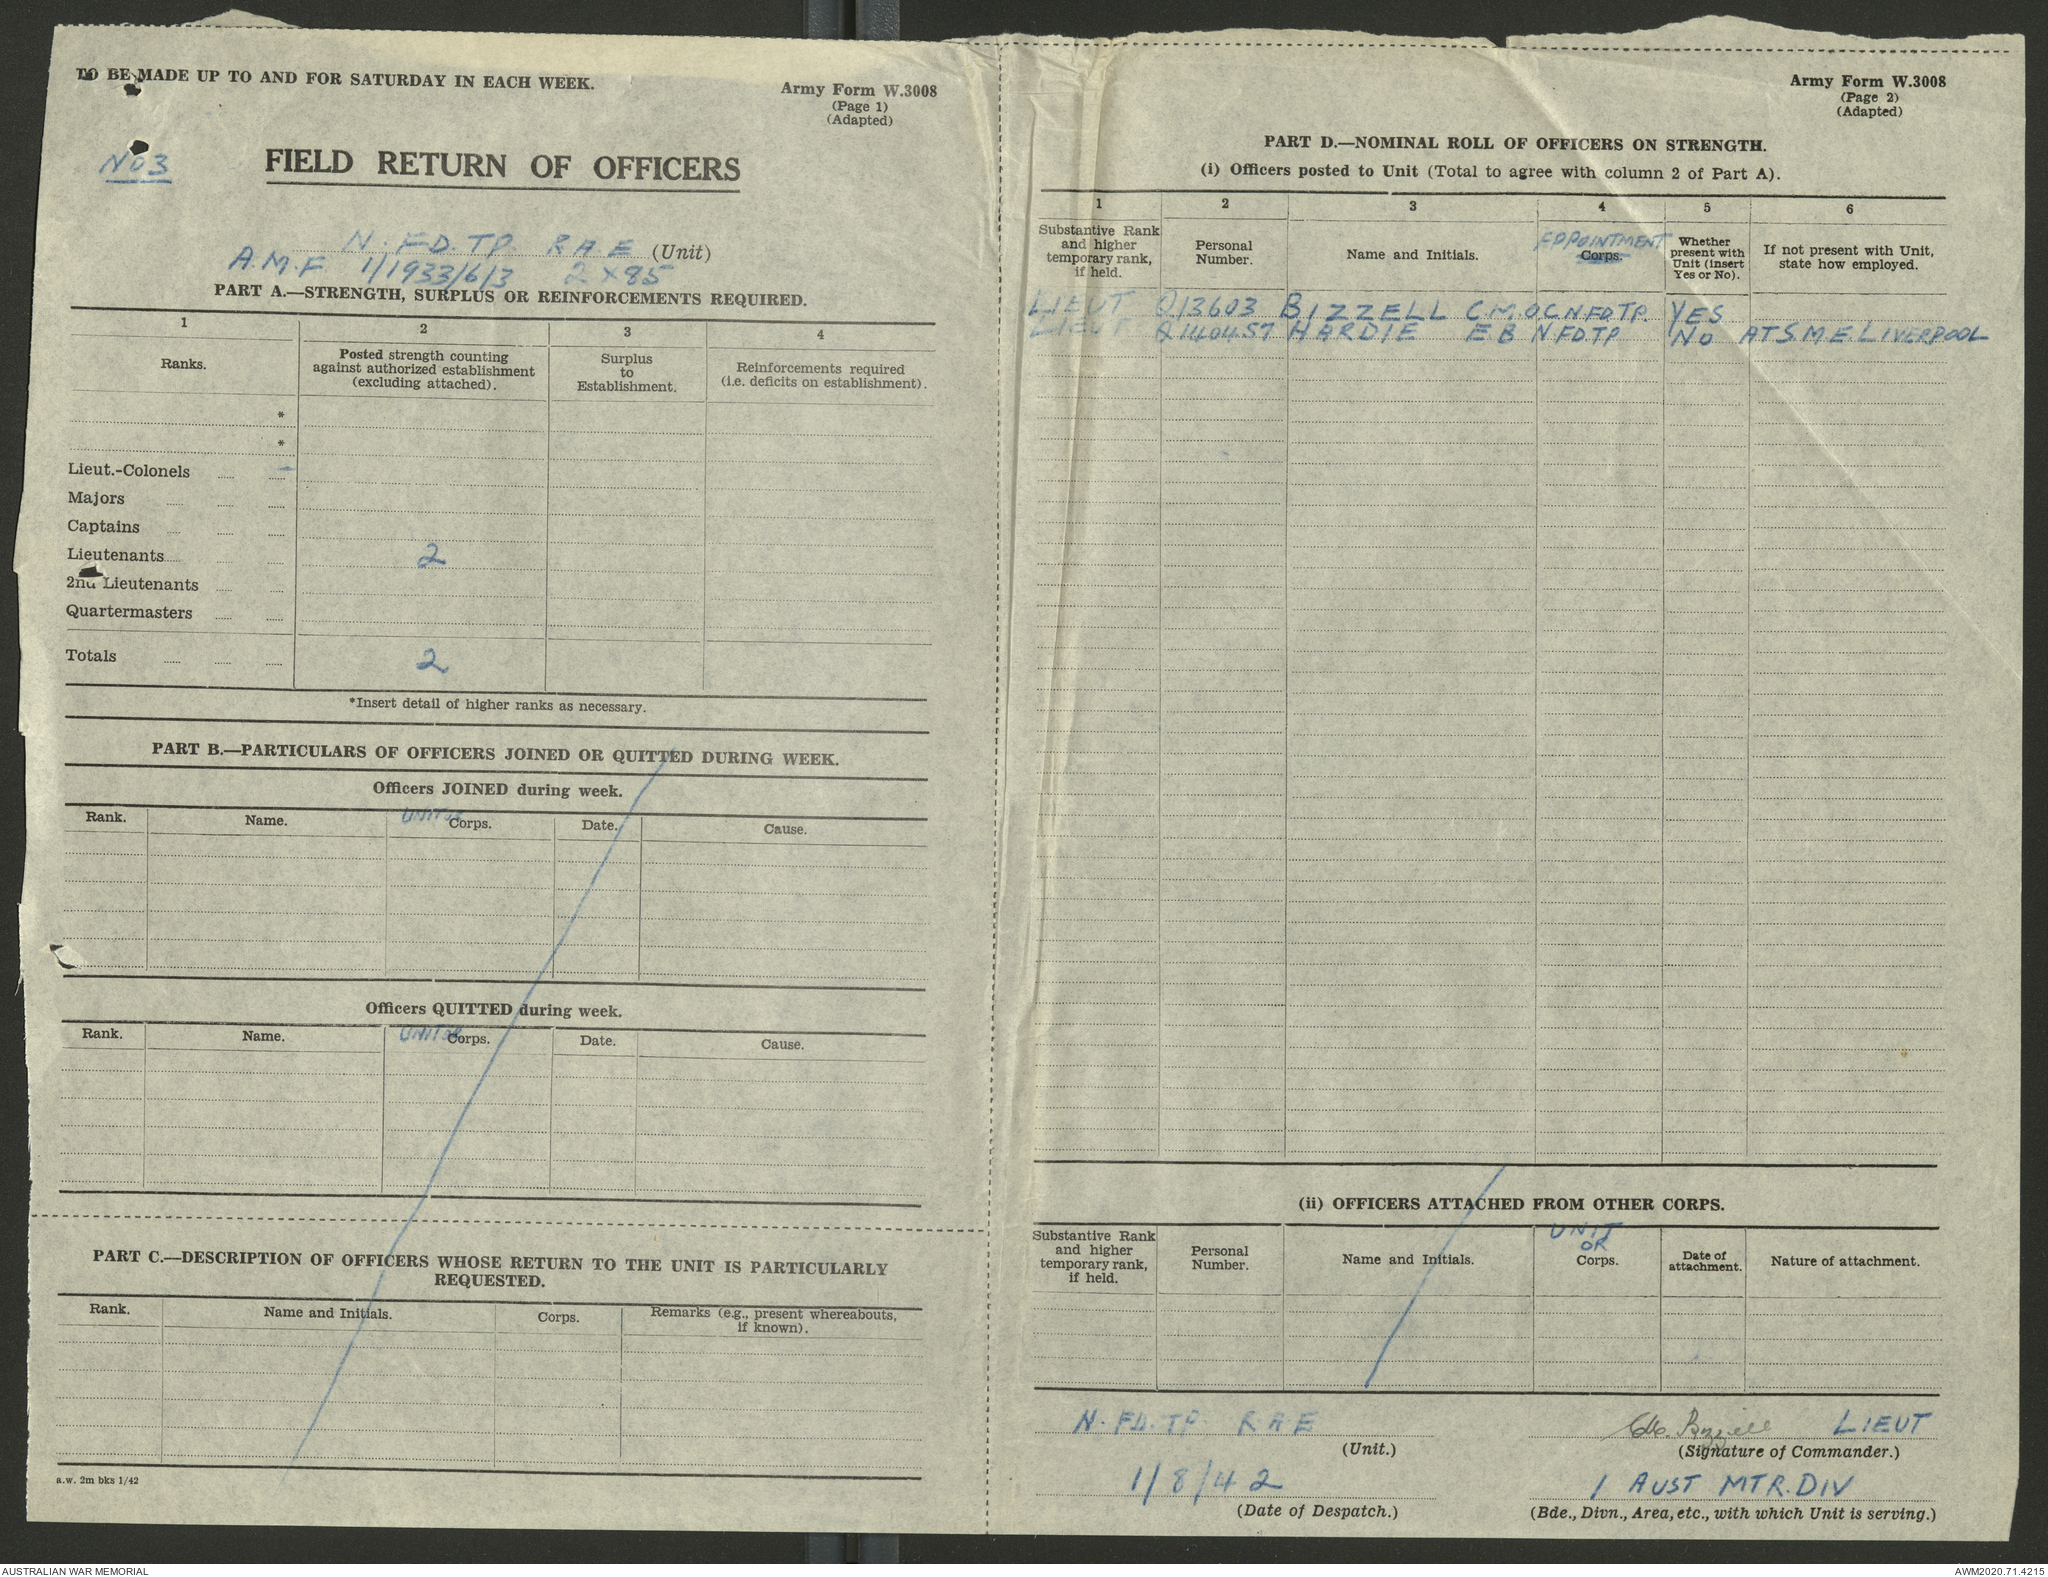 TO BE MADE UP TO AND FOR SATURDAY IN EACH WEEK.
Army Form W.3008
(Page 1)
(Adapted)
No 3
FIELD RETURN OF OFFICERS
N. FD. TP. R A E (Unit)
A.M.F 1/1933/6/3 2 x 85
PART A.—STRENGTH, SURPLUS OR REINFORCEMENTS REQUIRED.
1 2 3 4
Ranks.
Posted strength counting against authorized establishment (excluding attached).
Surplus to Establishment.
Reinforcements required (i.e. deficits on establishment).
*
*
Lieut.-Colonels
Majors
Captains
Lieutenants 2
2nd Lieutenants
Quartermasters
Totals 2
*Insert detail of higher ranks as necessary.
PART B.—PARTICULARS OF OFFICERS JOINED OR QUITTED DURING WEEK.
Officers JOINED during week.
Rank. Name. UNIT OR Corps. Date. Cause.
Officers QUITTED during week.
Rank. Name. UNIT OR Corps. Date. Cause.
PART C.—DESCRIPTION OF OFFICERS WHOSE RETURN TO THE UNIT IS PARTICULARLY
REQUESTED.
Rank. Name and Initials. Corps. Remarks (e.g., present whereabouts, if known).
a.w. 2m bks 1/42
Army Form W.3008
(Page 2)
(Adapted)
PART D.—NOMINAL ROLL OF OFFICERS ON STRENGTH.
(i) Officers posted to Unit (Total to agree with column 2 of Part A).
1 2 3 4 5 6
Substantive Rank and higher temporary rank, if held.
Personal Number.
Name and Initials.
APPOINTMENT
Corps.
Whether present with Unit (insert Yes or No).
If not present with Unit, state how employed.
LIEUT Q13603 BIZZELL C.M. OC N.FD.TP. YES
LIEUT Q140457 HARDIE E B N FD TP NO AT S.M.E. LIVERPOOL
(ii) OFFICERS ATTACHED FROM OTHER CORPS.
Substantive Rank and higher temporary rank, if held.
Personal Number.
Name and Initials.
UNIT OR
Corps.
Date of attachment.
Nature of attachment.
N. FD. TP. R A E
(Unit.)
C.M. Bizzell LIEUT
(Signature of Commander.)
1/8/42
(Date of Despatch.)
1 AUST MTR. DIV
(Bde., Divn., Area, etc., with which Unit is serving.)
AUSTRALIAN WAR MEMORIAL
AWM2020.71.4215